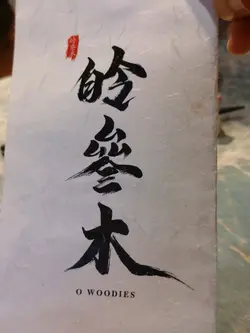 皊叄木
O WOODIES